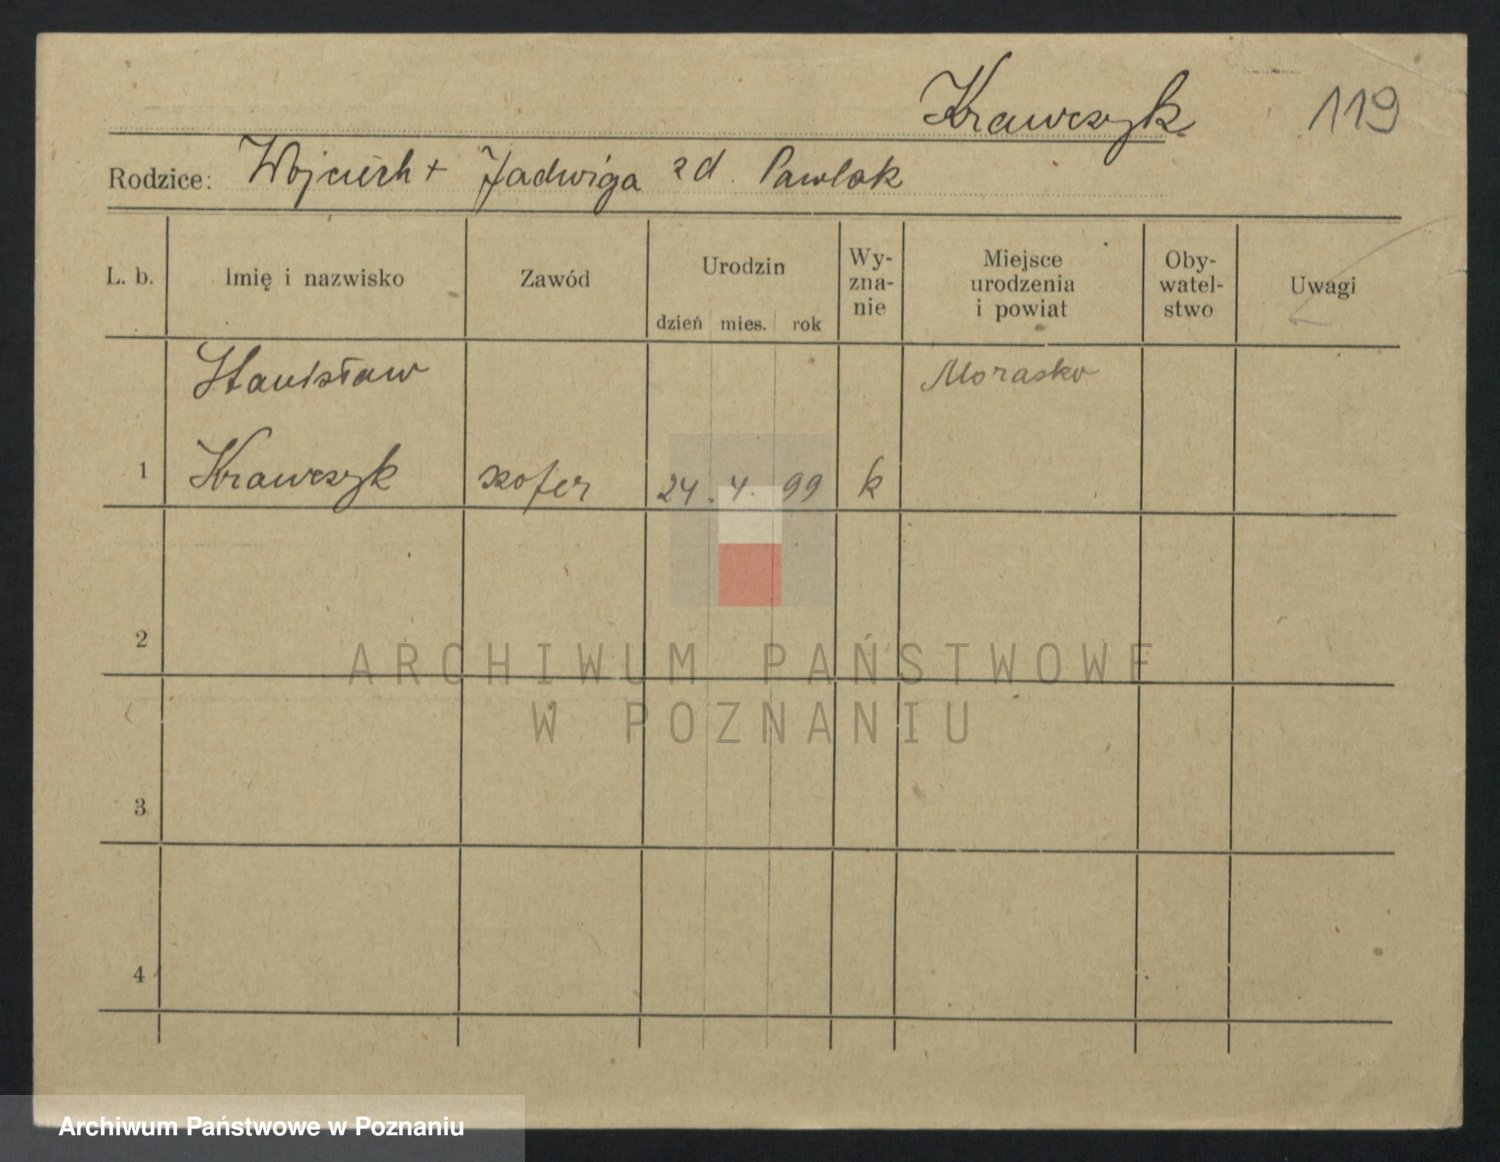 Krawczyk 119
Rodzice: Wojciech + Jadwiga zd. Pawlak
L. b. Imię i nazwisko Zawód Urodzin dzień mies. rok Wy-zna-nie Miejsce urodzenia i powiat Oby-watel-stwo Uwagi
Stanisław Morasko
1 Krawczyk szofer 24. 4. 99 k
2
ARCHIWUM PAŃSTWOWE
W POZNANIU
3
4
Archiwum Państwowe w Poznaniu